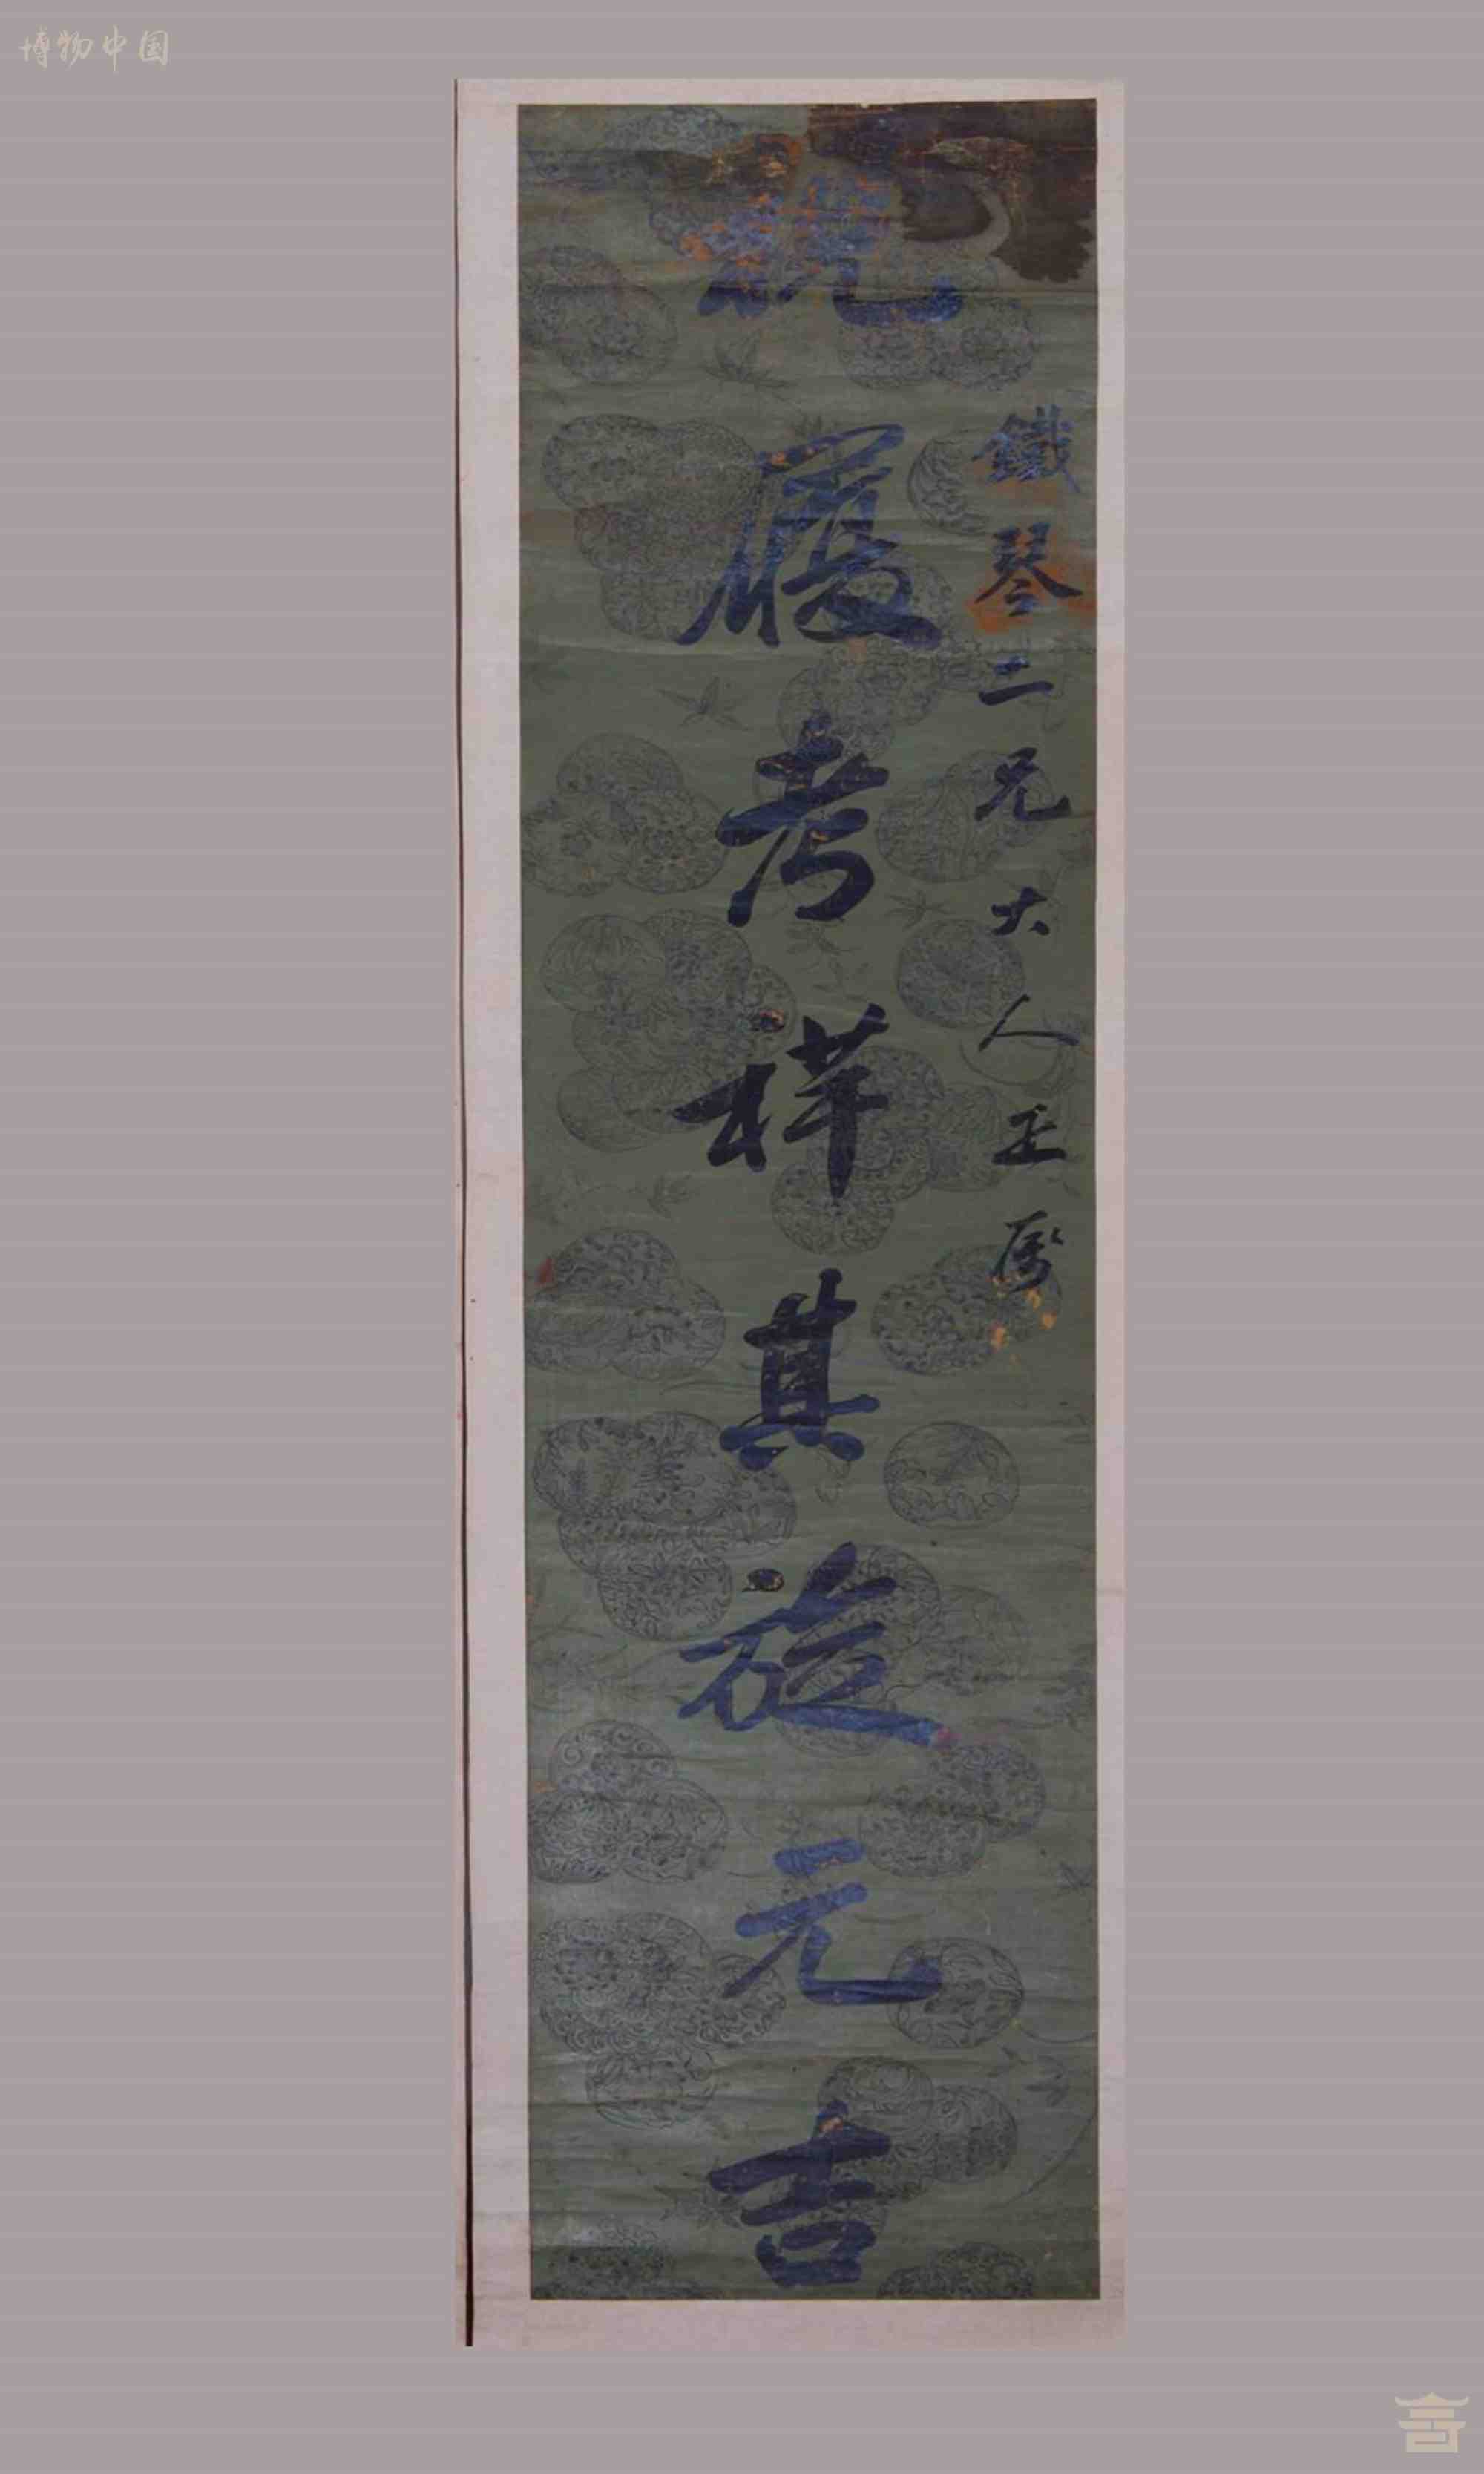 博物中国
鐵琴二兄大人正属
視履考祥其旋元吉